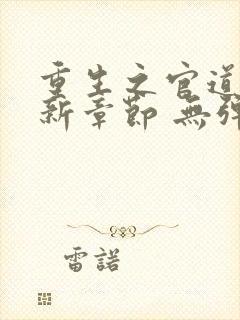 重生之官道
新章節 無彈
雷諾